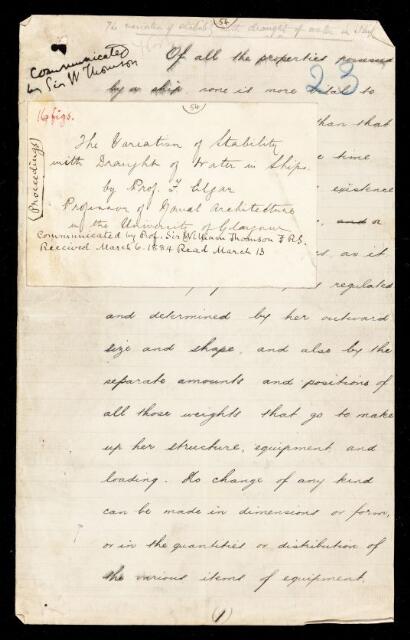 The variation of stability with draught of water in ships
(54)
Communicated
by Sir W Thomson
Of all the properties possessed
by a ship, none is more vital to
23
16 figs.
(54)
(Proceedings)
The Variation of Stability
with Draught of Water in Ships.
by Prof. F. Elgar
Professor of Naval Architecture
in the University of Glasgow
Communicated by Prof. Sir William Thomson F.R.S.
Received March 6. 1884 Read March 13
than that
time
existence
and or
as it
regulated
and determined by her outward
size and shape, and also by the
separate amounts and positions of
all those weights that go to make
up her structure, equipment, and
loading. No change of any kind
can be made in dimensions or form,
or in the quantities or distribution of
the various items of equipment.
(1)